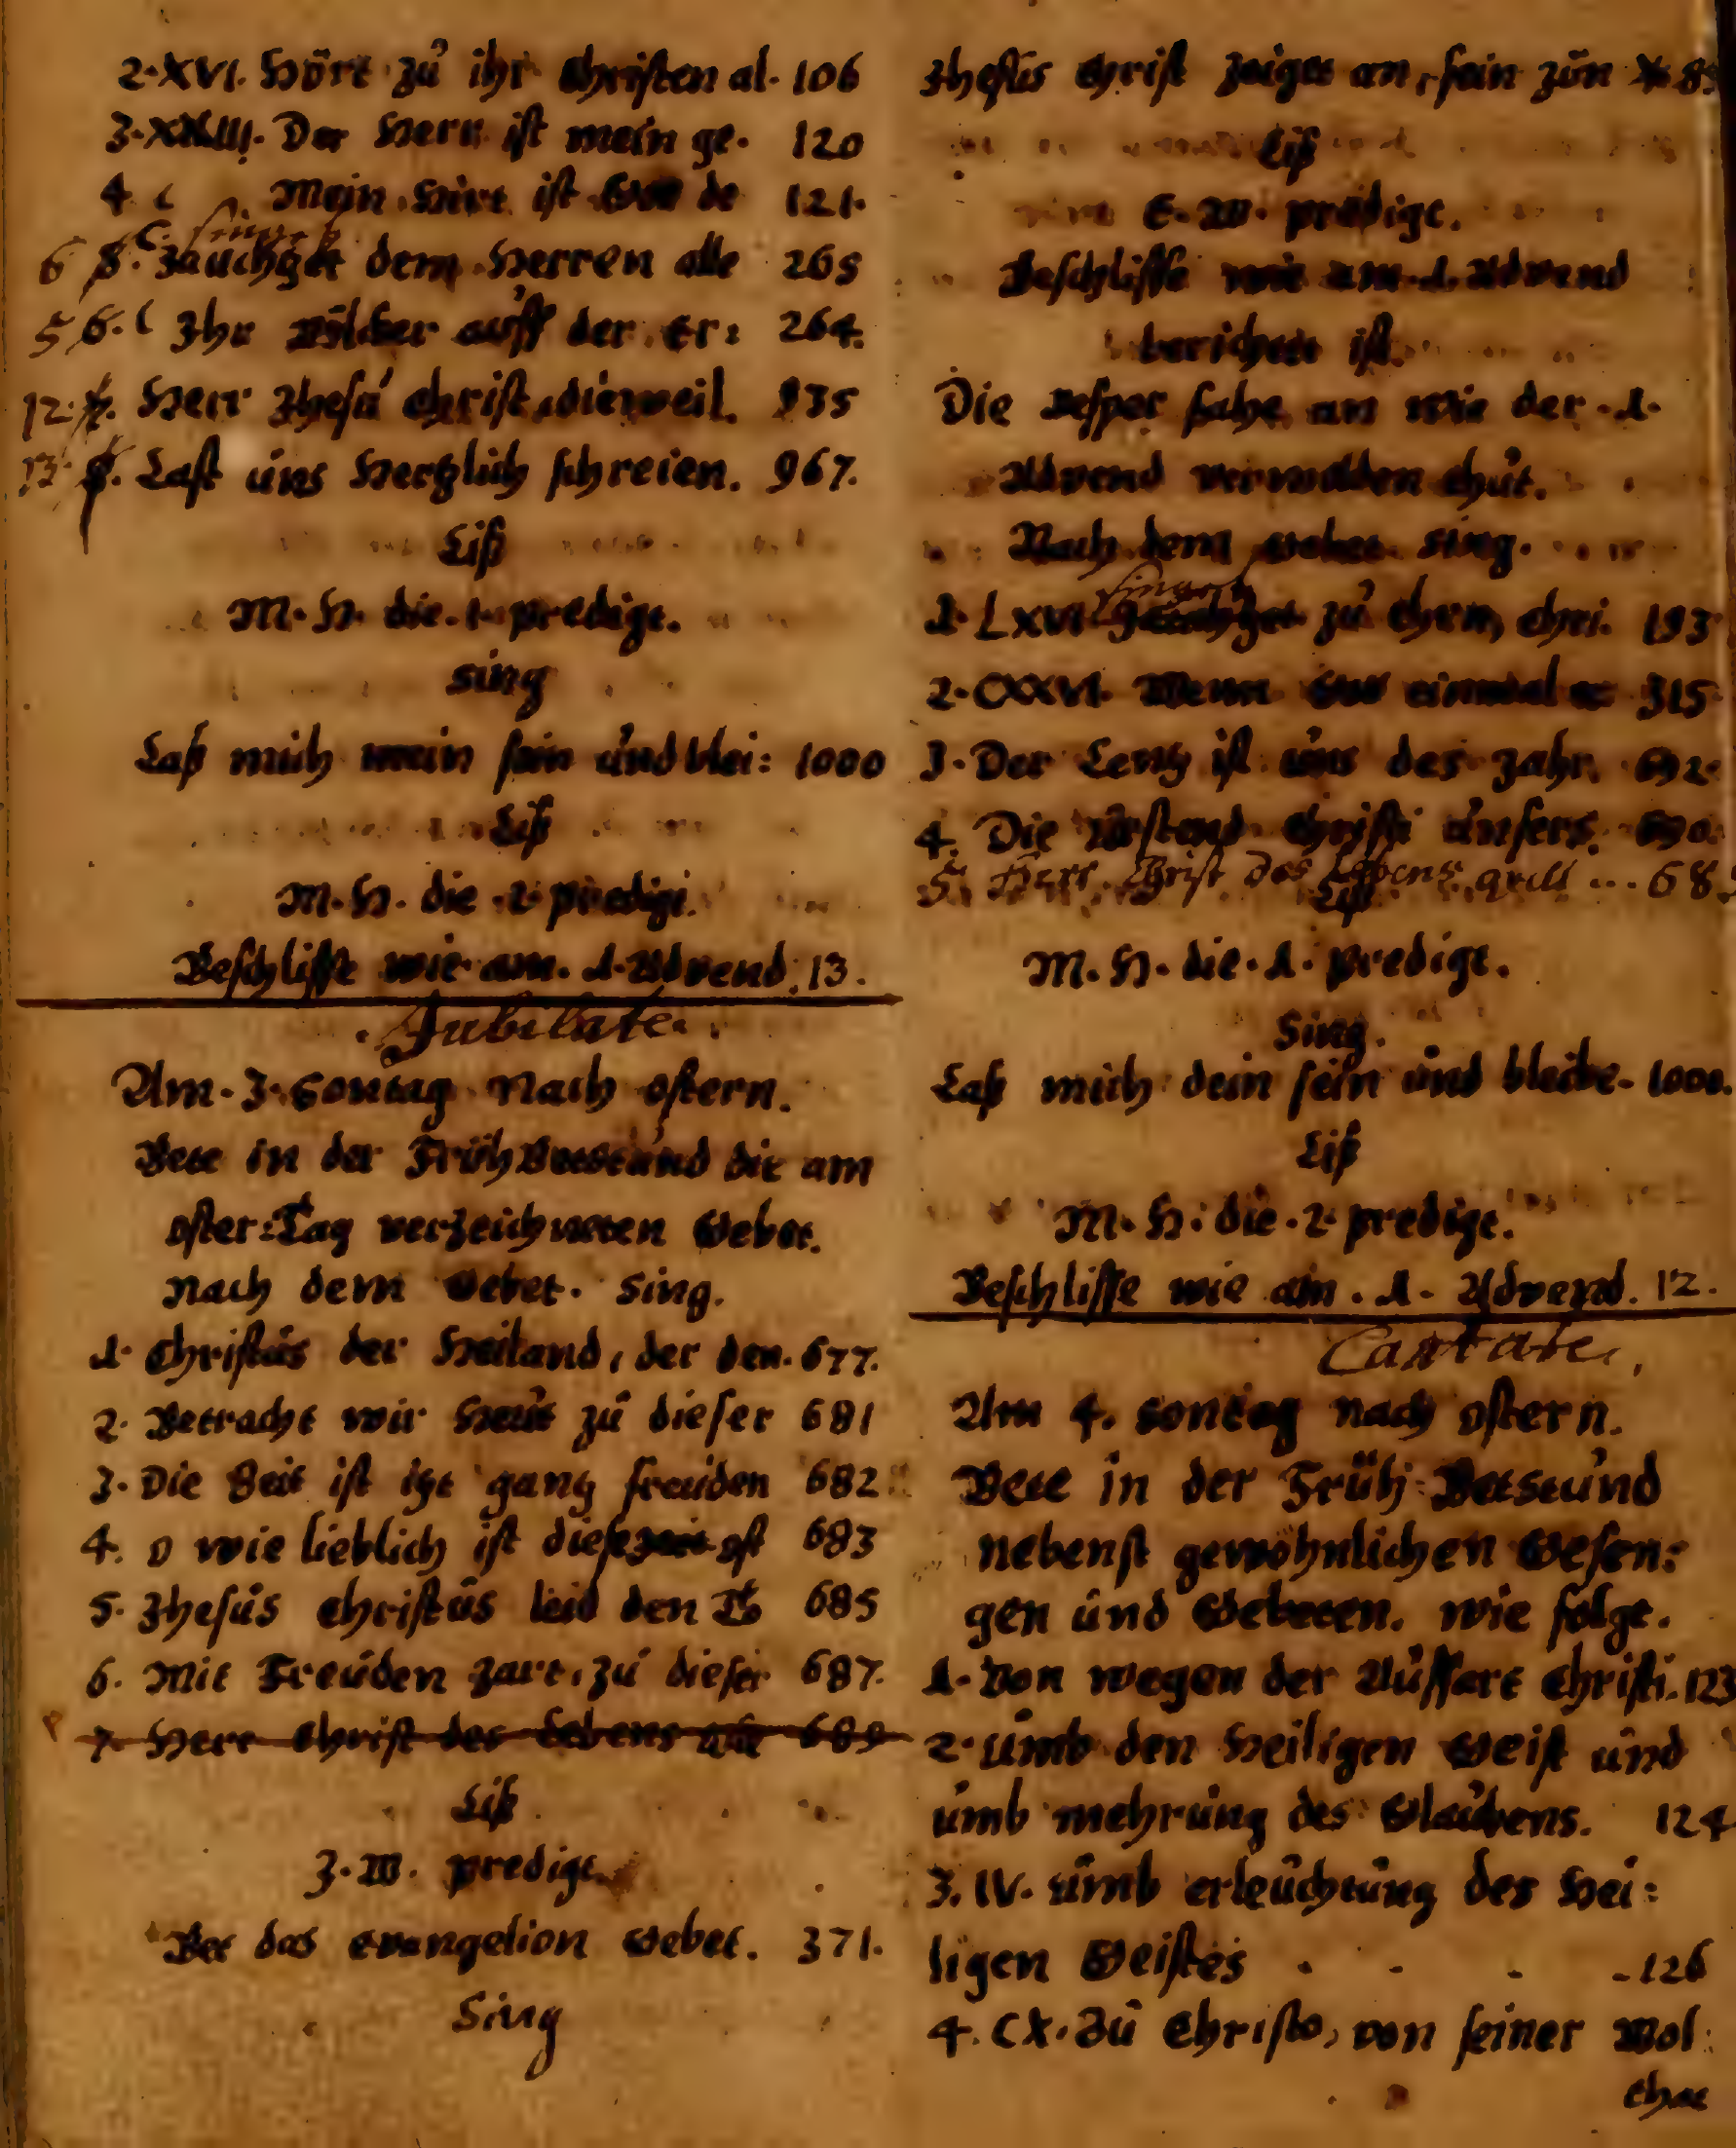 2. XVI. Hört zu ihr Christen al. 106
3. XXIII. Der Herr ist mein ge. 120
4. Mein Hirt ist Gott de 121.
C. singet
6 5. Jauchzet dem Herren alle 265
5 6. C Ihr Völcker auff der Er: 264.
12. 7. Herr Jhesu Christ, dieweil. 935
13. 8. Last uns Hertzlich schreien. 967.
Liß
M. H. die. 1. predigt.
sing
Laß mich mein sein und blei: 1000
Liß
M. H. die 2 predigt.
Beschlisse wie am. 1. Advend. 13.
Jubilate.
Am. 3. Sontag Nach ostern.
Bete in der Früh Betstund die am
oster: Tag verzeichneten Gebet.
Nach dem Gebet. Sing.
1. Christus der Heiland, der den. 677.
2. Betracht wir Heut zu dieser 681
3. Die Zeit ist itzt gantz freuden 682
4. O wie lieblich ist diese zeit ost 683
5. Jhesus Christus leid den To 685
6. Mit Freuden zart, zu dieser 687.
7. Herr Christ des Lebens 689
Liß
J. W. predigt.
Bet das evangelion Gebet. 371.
Sing
Jhesus Christ zeiget an, sein zun
Liß
E. W. predigt.
Beschlisse wie am. 1. Advend
berichtet ist.
Die Vesper fahe an wie der. 1.
Advend vermelden thut.
Nach dem Gebet sing.
singet
1. LXVI Jauchzet zu Ehrn, Chri. 193
2. CXXVI. Wenn Gott einmal er 315
3. Der Lentz ist uns des Jahr. 692.
4. Die Urstend Christi unsers. 690.
5. Herr Christ des Lebens quell ... 68
Liß
M. H. die. 1. predigt.
Sing.
Laß mich dein sein und bleibe. 1000.
Liß
M. H. die. 2 predigt.
Beschlisse wie am. 1. Advend. 12.
Cantate.
Am 4. Sontag nach ostern.
Bete in der Früh: Betstund
nebenst gewöhnlichen Gesen:
gen und Gebeten. wie folgt.
1. Von wegen der Auffart Christi. 123
2. umb den Heiligen Geist und
umb mehrung des Glaubens. 124
3. IV. umb erleuchtung des Hei:
ligen Geistes . - . - 126
4. CX. Zu Christo, von seiner Wol:
that